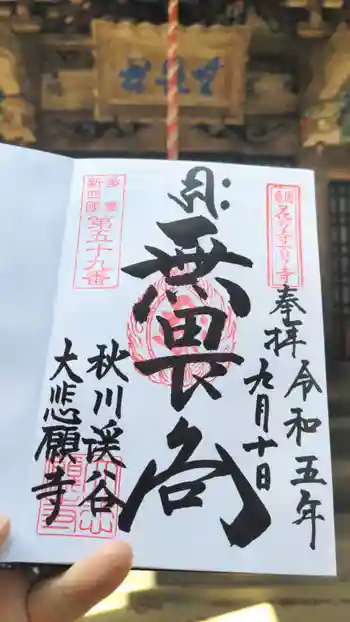 奉拝
令和五年
九月十日
無畏閣
秋川渓谷
大悲願寺
多摩
新四国
第五十九番